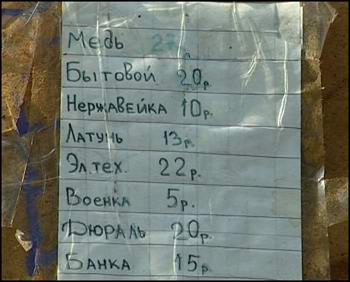 Медь
Бытовой 20р.
Нержавейка 10р.
Латунь 13р.
Эл.тех. 22р.
Военка 5р.
Дюраль 20р.
Банка 15р.